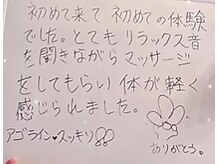 初めて来て初めての体験
でした。とてもリラックス音
を聞きながらマッサージ
をしてもらい体が軽く
感じられました。
アゴライン・スッキリ
ありがとう。